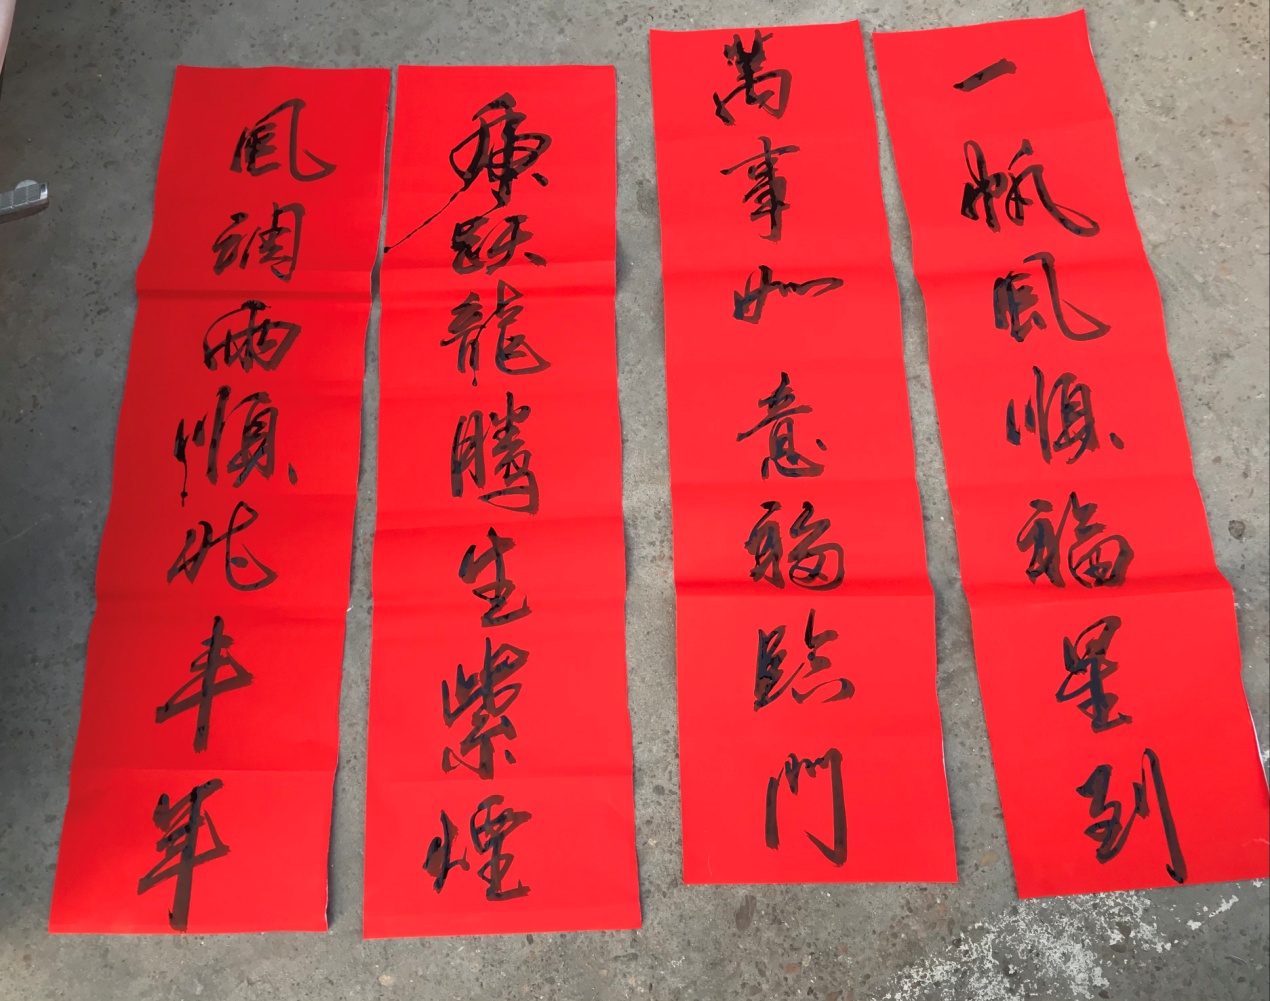 一帆風順福星到
萬事如意福臨門
虎跃龍騰生紫煙
風調雨順兆丰年